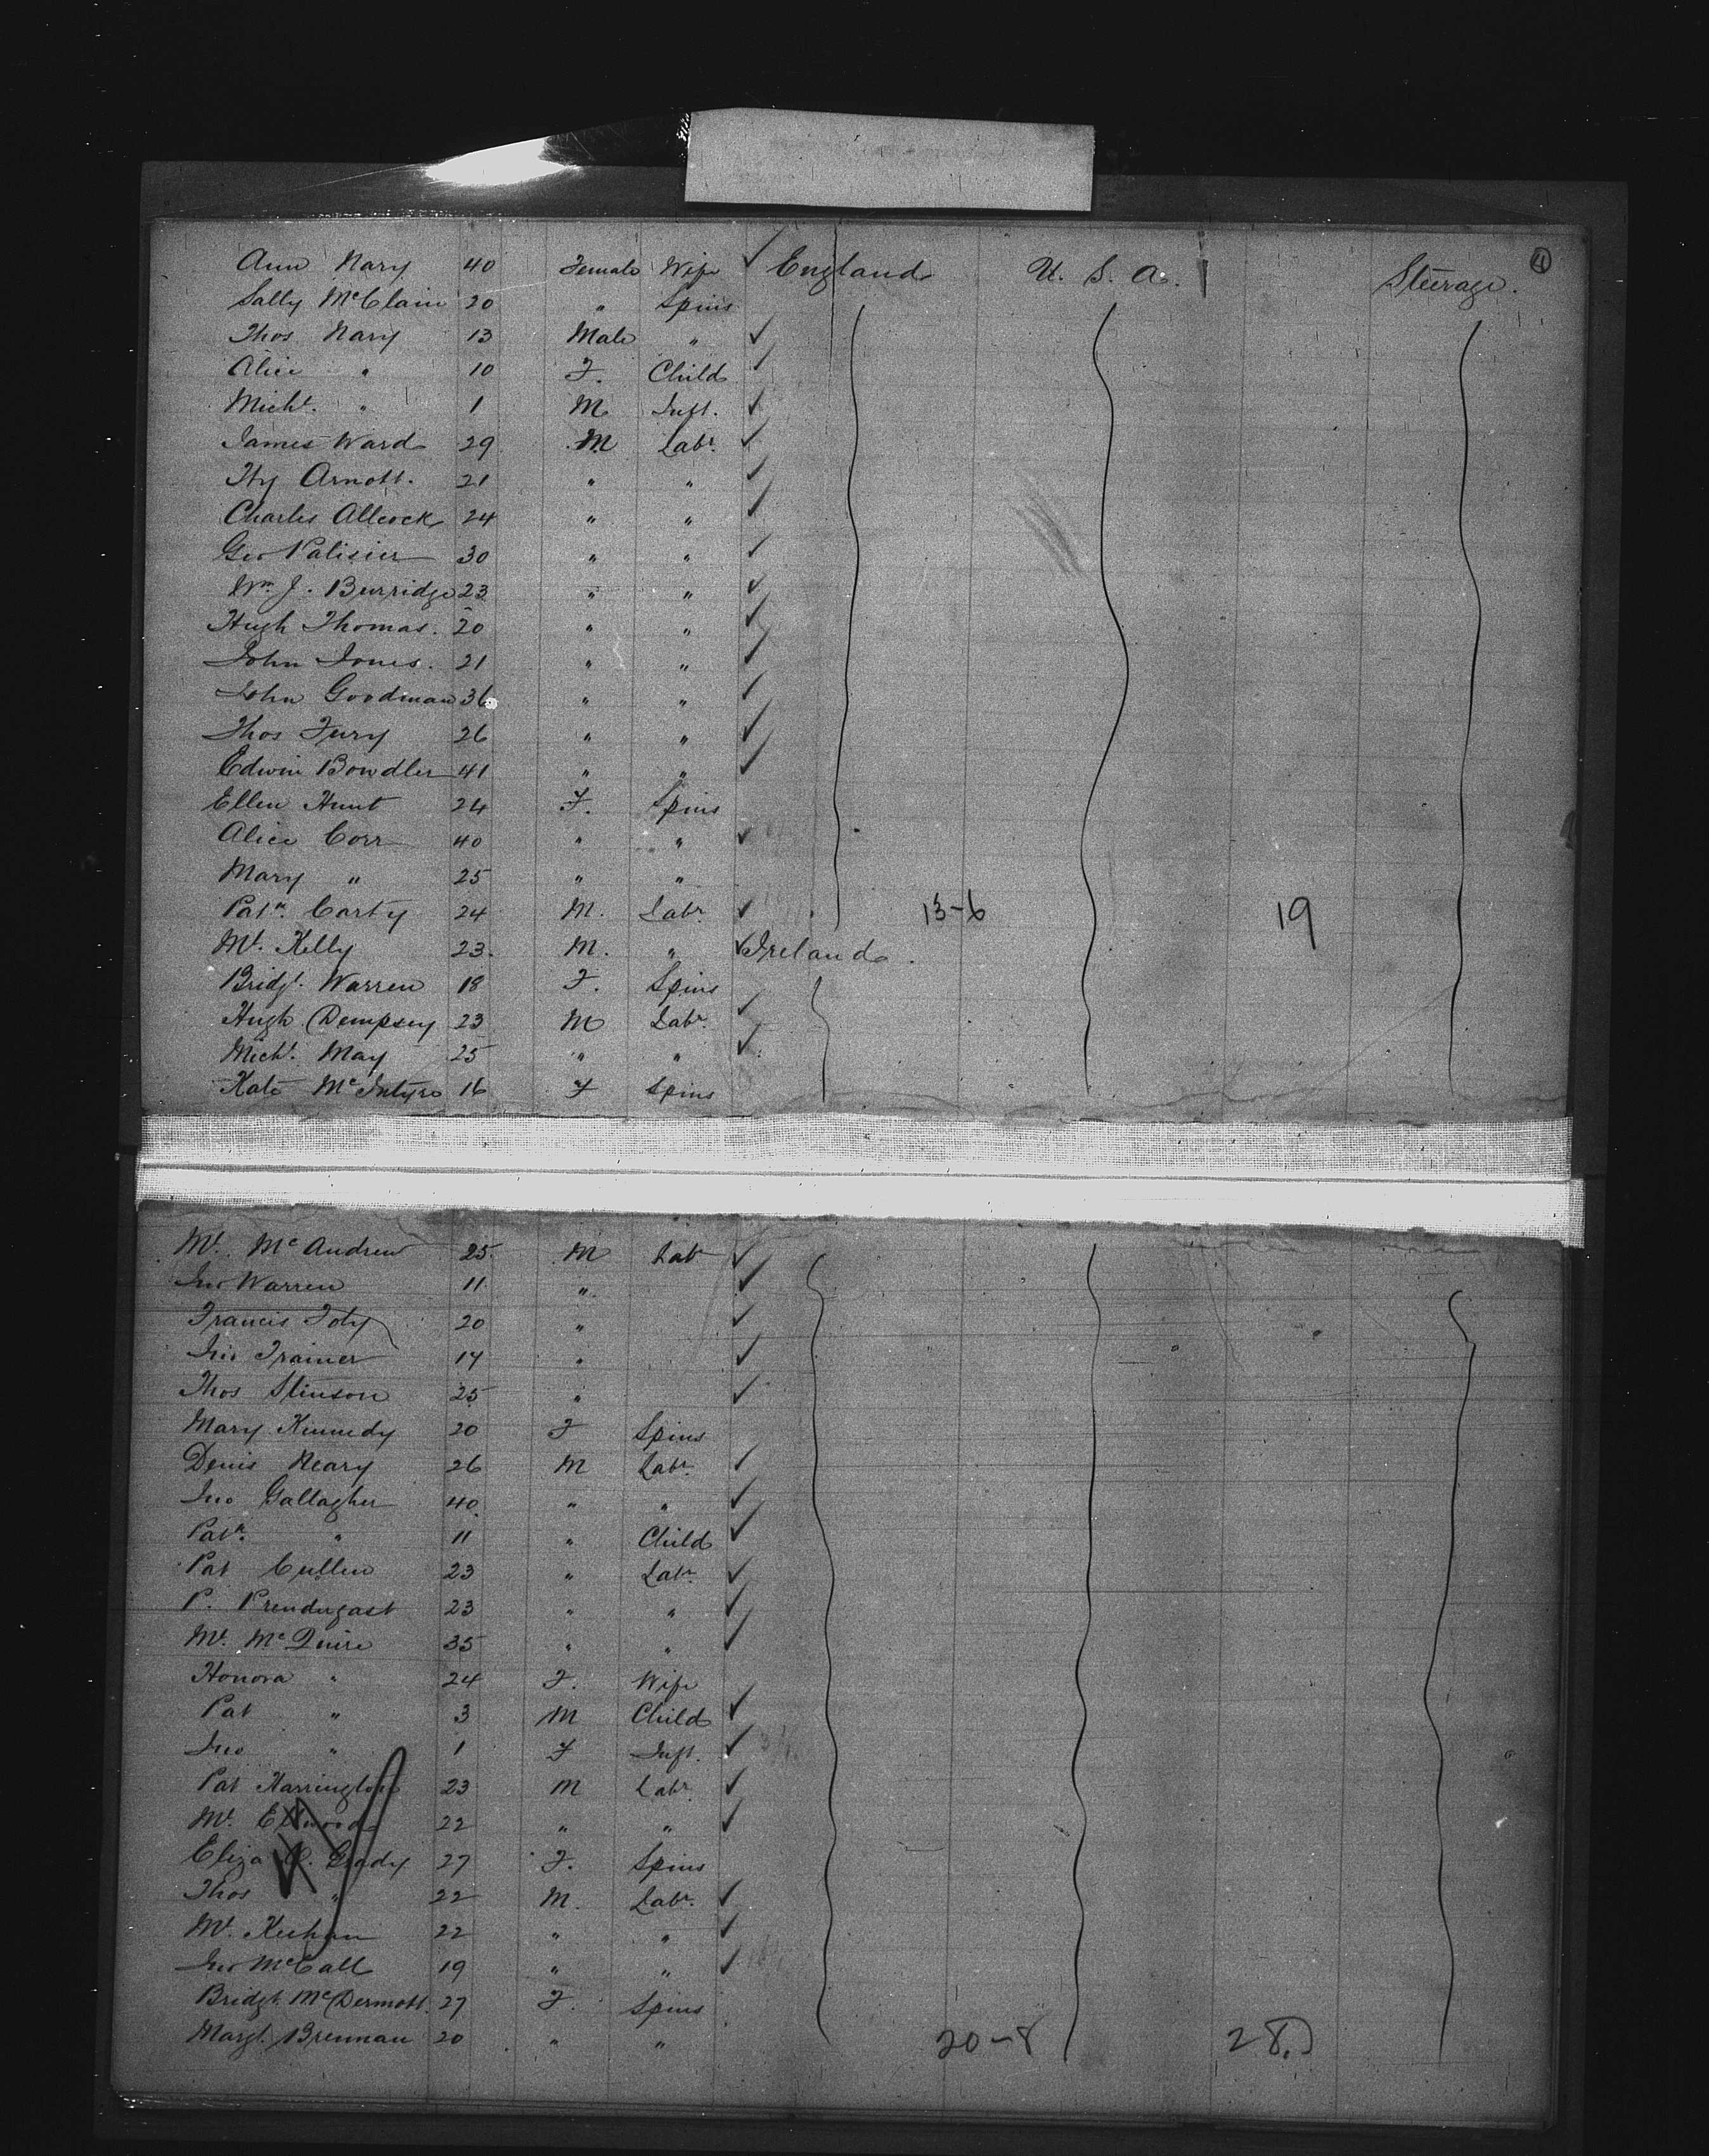 4
Ann Nary 40 Female Wife ✓ England U. S. A. Steerage.
Sally McClain 20 " Spins
Thos Nary 13 Male " ✓
Alice " 10 F. Child ✓
Michl. " 1 M Inft. ✓
James Ward 29 M Labr. ✓
Hy Arnott. 21 " " ✓
Charles Allcock 24 " " ✓
Geo Palisier 30 " " ✓
Wm. J. Burridge 23 " " ✓
Hugh Thomas. 20 " " ✓
John Jones. 21 " " ✓
John Goodman 36 " " ✓
Thos Fury 26 " " ✓
Edwin Bowdler 41 " " ✓
Ellen Hunt 24 F. Spins
Alice Corr 40 " " ✓
Mary " 25 " "
Patk. Carty 24 M. Labr. ✓ 13-6 19
Ml. Kelly 23. M. " ✓ Ireland.
Bridgt. Warren 18 F. Spins
Hugh Dempsey 23 M Labr. ✓
Michl. May 25 " " ✓
Kate McIntyre 16 F Spins
Ml. McAndrew 25. M Labr ✓
Jno Warren 11 " ✓
Francis Foty 20 " ✓
Jno Trainer 14 " ✓
Thos Stinson 25 " ✓
Mary Kennedy 20 F Spins
Denis Neary 26 M Labr. ✓
Jno Gallagher 40 " " ✓
Patk. " 11 " Child ✓
Pat Cullen 23 " Labr. ✓
P. Prendergast 23 " " ✓
Ml. McQuire 35 " " ✓
Honora " 24 F. Wife
Pat " 3 M Child ✓
Jno " 1 F Inft. ✓
Pat Harrington 23 M Labr. ✓
Ml. 22 " " ✓
Eliza O. Grady 27 F. Spins
Thos " 22 M. Labr. ✓
Ml. Keehan 22 " " ✓
Jno McCall 19 " " ✓
Bridgt. McDermott. 27 F. Spins
Margt. Brennan 20 " " 20-8 28